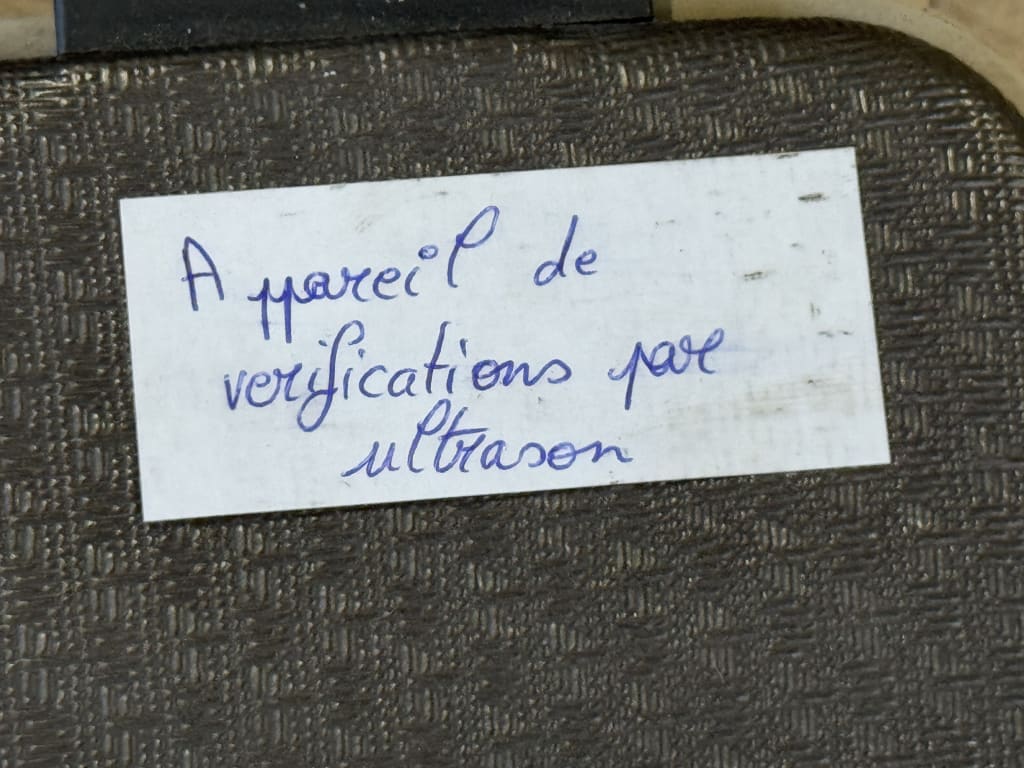 Appareil de
verifications par
ultrason